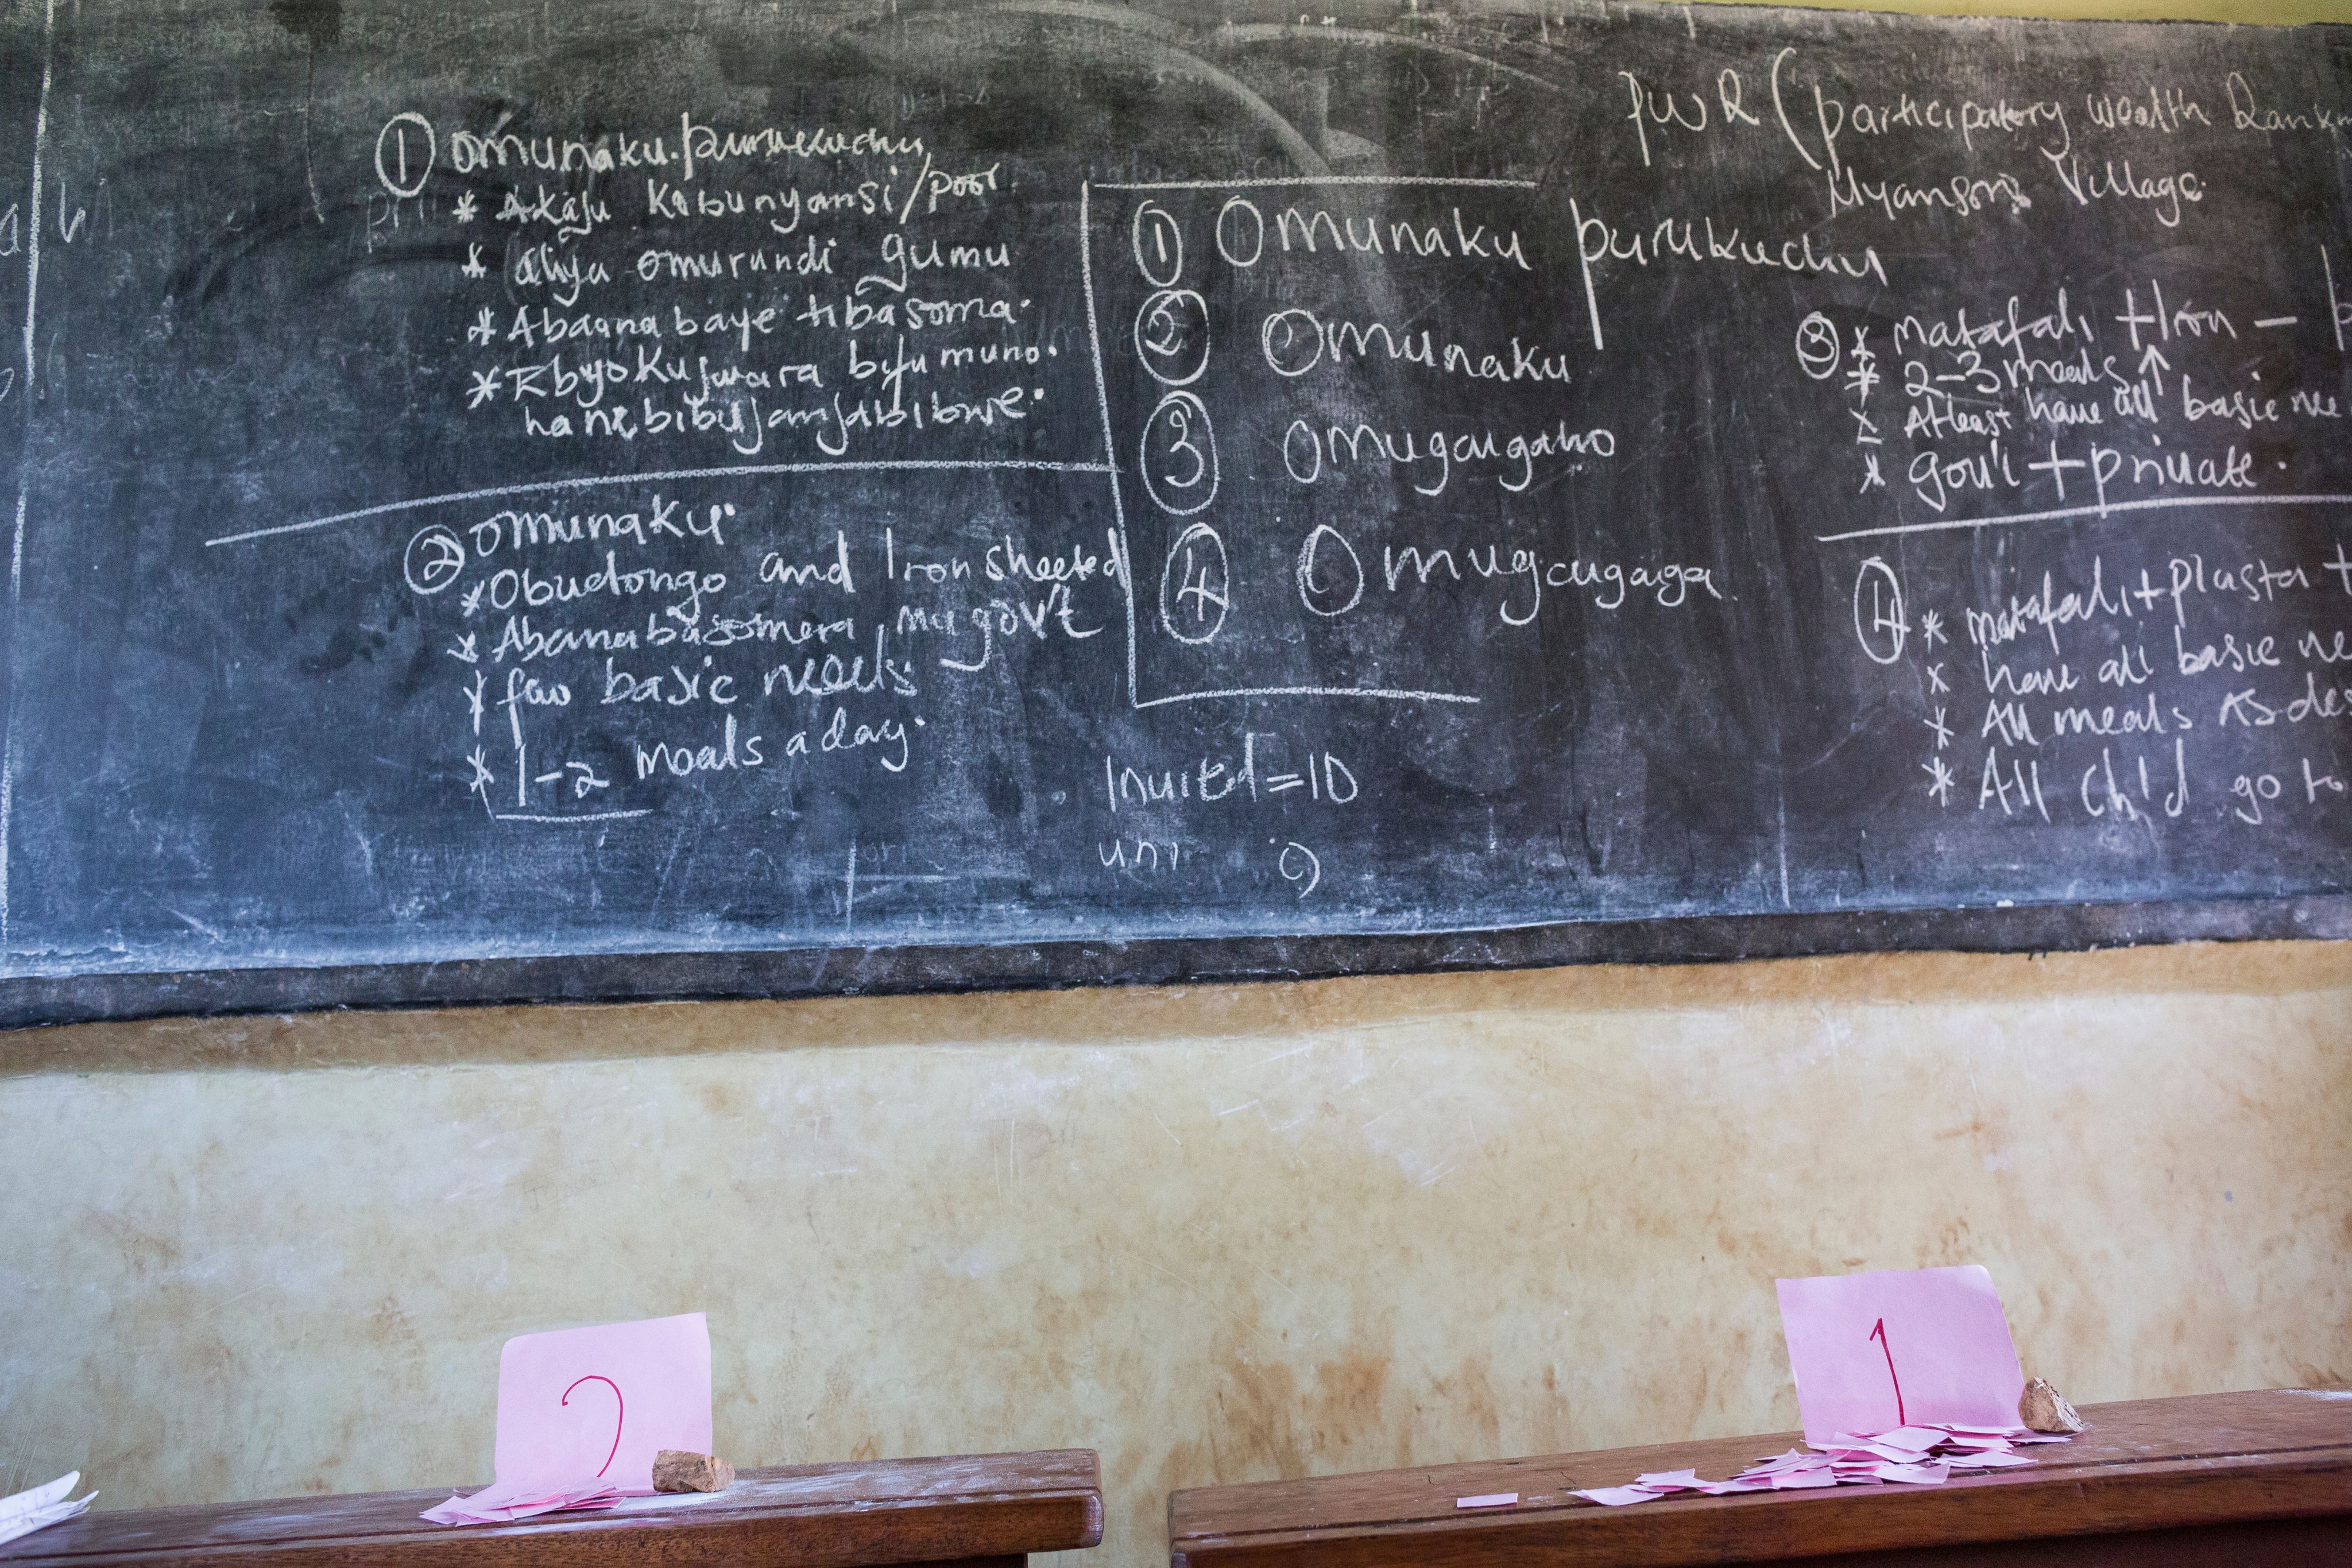 PWR (participatory wealth Rank
Nyansoni Village
① Omunaku purukuchu
* Akaju Kabunyansi/poor
* aliya omurundi gumu
* Abaana baye tibasoma.
* Ebyokujwara byamuno.
② Omunaku.
* Obudongo and Iron sheeted
* Abana basomera mu gov't
* few basic needs
* 1-2 meals a day.
① Omunaku purukuchu
② Omunaku
③ Omugaigaho
④ Omugaigaga
Invited = 10
uni 9
③ * matafali + Iron -
* 2-3 meals ↑
* Atleast have all basic nee
* gov't + private.
④ * matafali + plasta +
* have all basic ne
* All meals As des
* All child go to
2
1